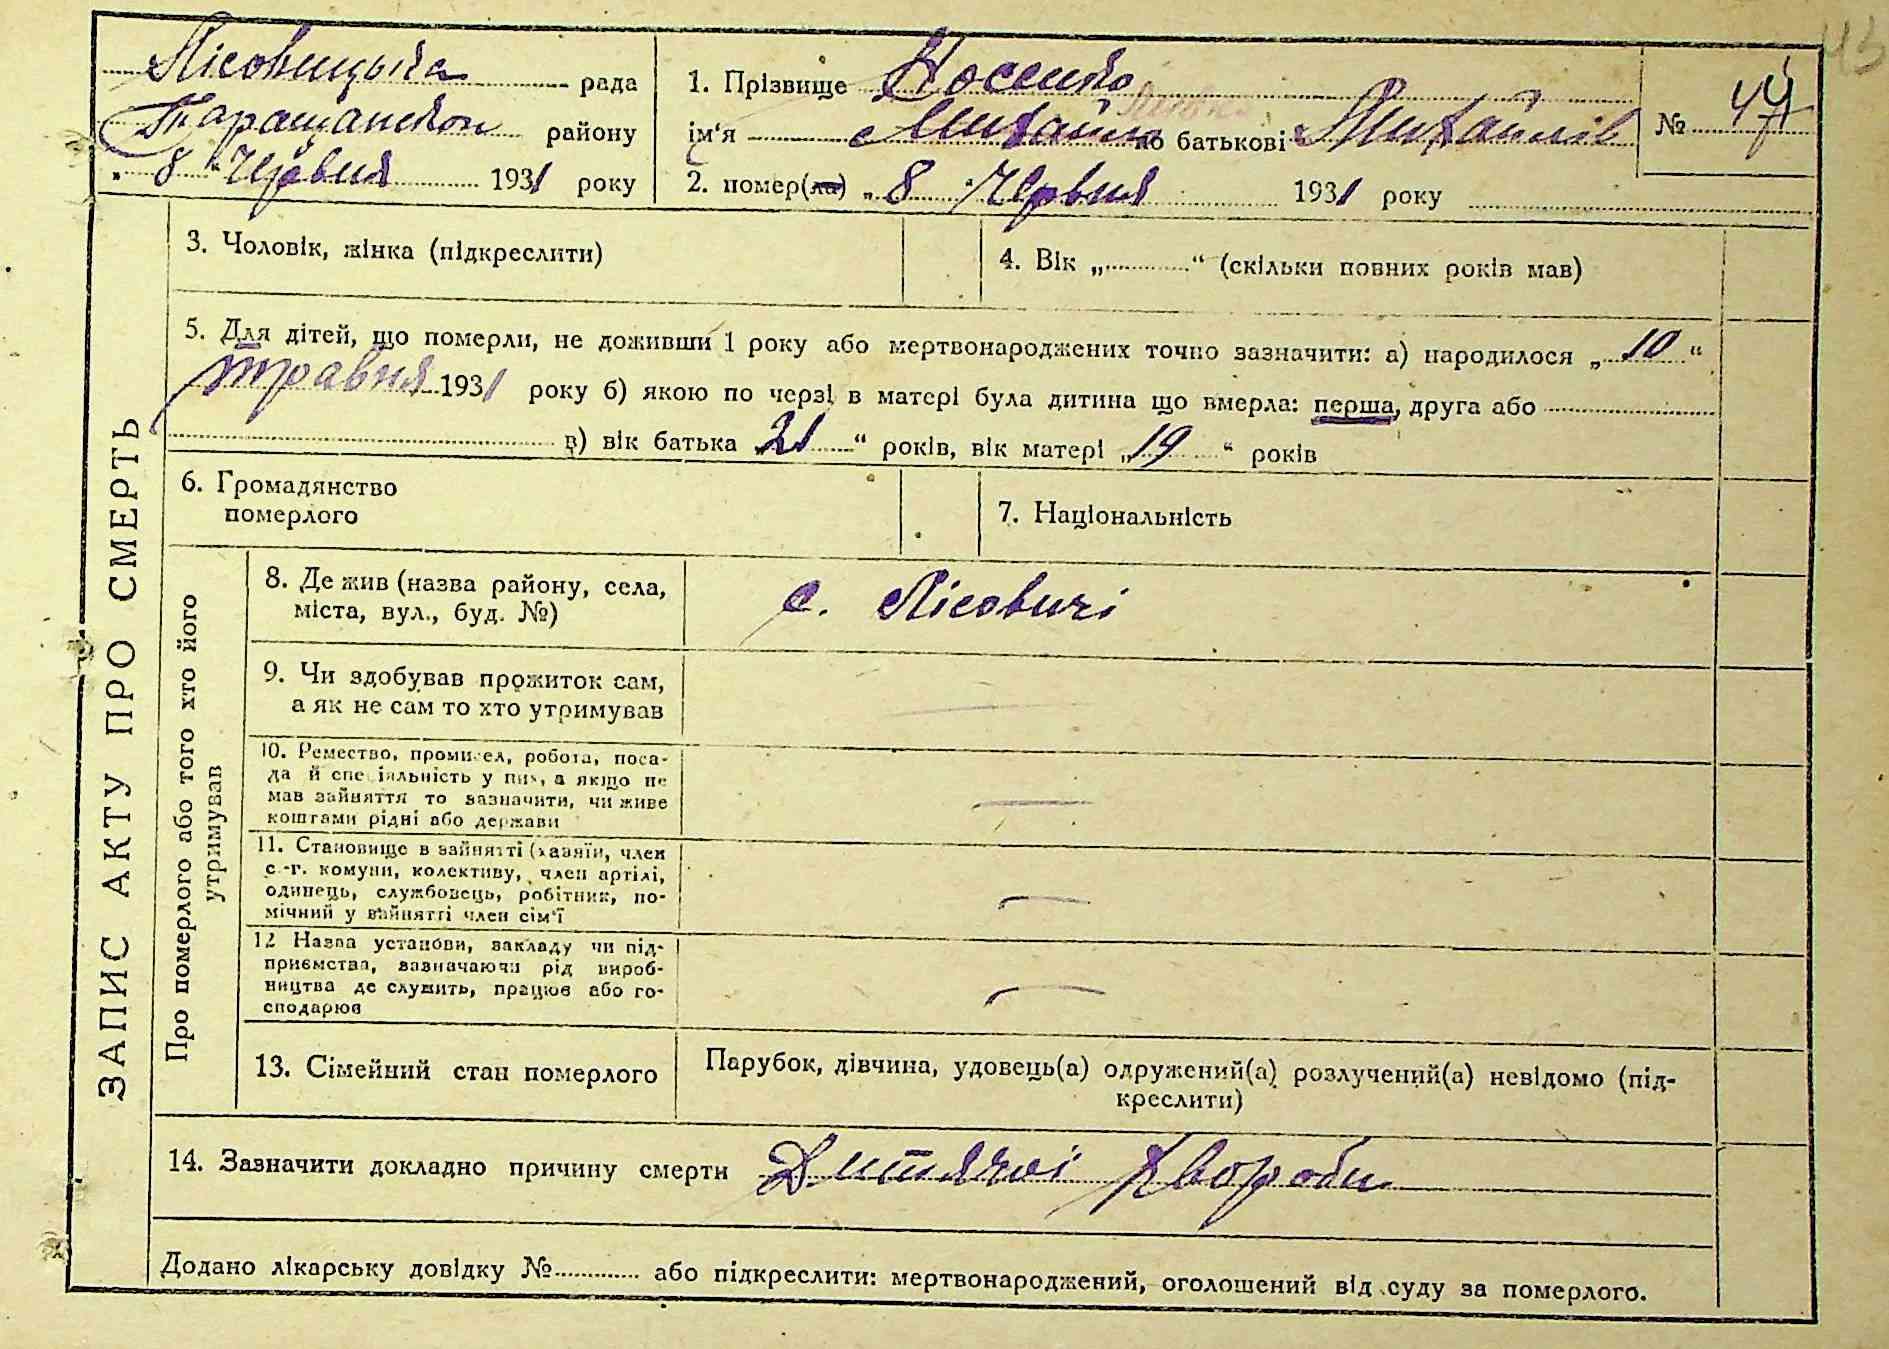 Лісовицька рада
Таращанской району
„ 8 " Червня 1931 року
1. Прізвище Носенко
ім'я Михайло по батькові Михайлів
2. помер(ла) „ 8 " Червня 1931 року
№ 44
43
ЗАПИС АКТУ ПРО СМЕРТЬ
3. Чоловік, жінка (підкреслити)
4. Вік „............" (скільки повних років мав)
5. Для дітей, що померли, не доживши 1 року або мертвонароджених точно зазначити: а) народилося „ 10 "
травня 1931 року б) якою по черзі в матері була дитина що вмерла: перша, друга або
в) вік батька „ 21 " років, вік матері „ 19 " років
6. Громадянство
померлого
7. Національність
Про померлого або того хто його
утримував
8. Де жив (назва району, села,
міста, вул., буд. №)
с. Лісовичі
9. Чи здобував прожиток сам,
а як не сам то хто утримував
10. Ремество, промисел, робота, поса-
да й спеціяльність у них, а якщо не
мав зайняття то зазначити, чи живе
коштами рідні або держави
11. Становище в зайнятті (хазяїн, член
с.-г. комуни, колективу, член артілі,
одинець, службовець, робітник, по-
мічний у зайнятті член сім'ї
12 Назва установи, закладу чи під-
приємства, зазначаючи рід вироб-
ництва де служить, працює або го-
сподарює
13. Сімейний стан померлого
Парубок, дівчина, удовець(а) одружений(а) розлучений(а) невідомо (під-
креслити)
14. Зазначити докладно причину смерти Дитячої хвороби
Додано лікарську довідку №............ або підкреслити: мертвонароджений, оголошений від суду за померлого.